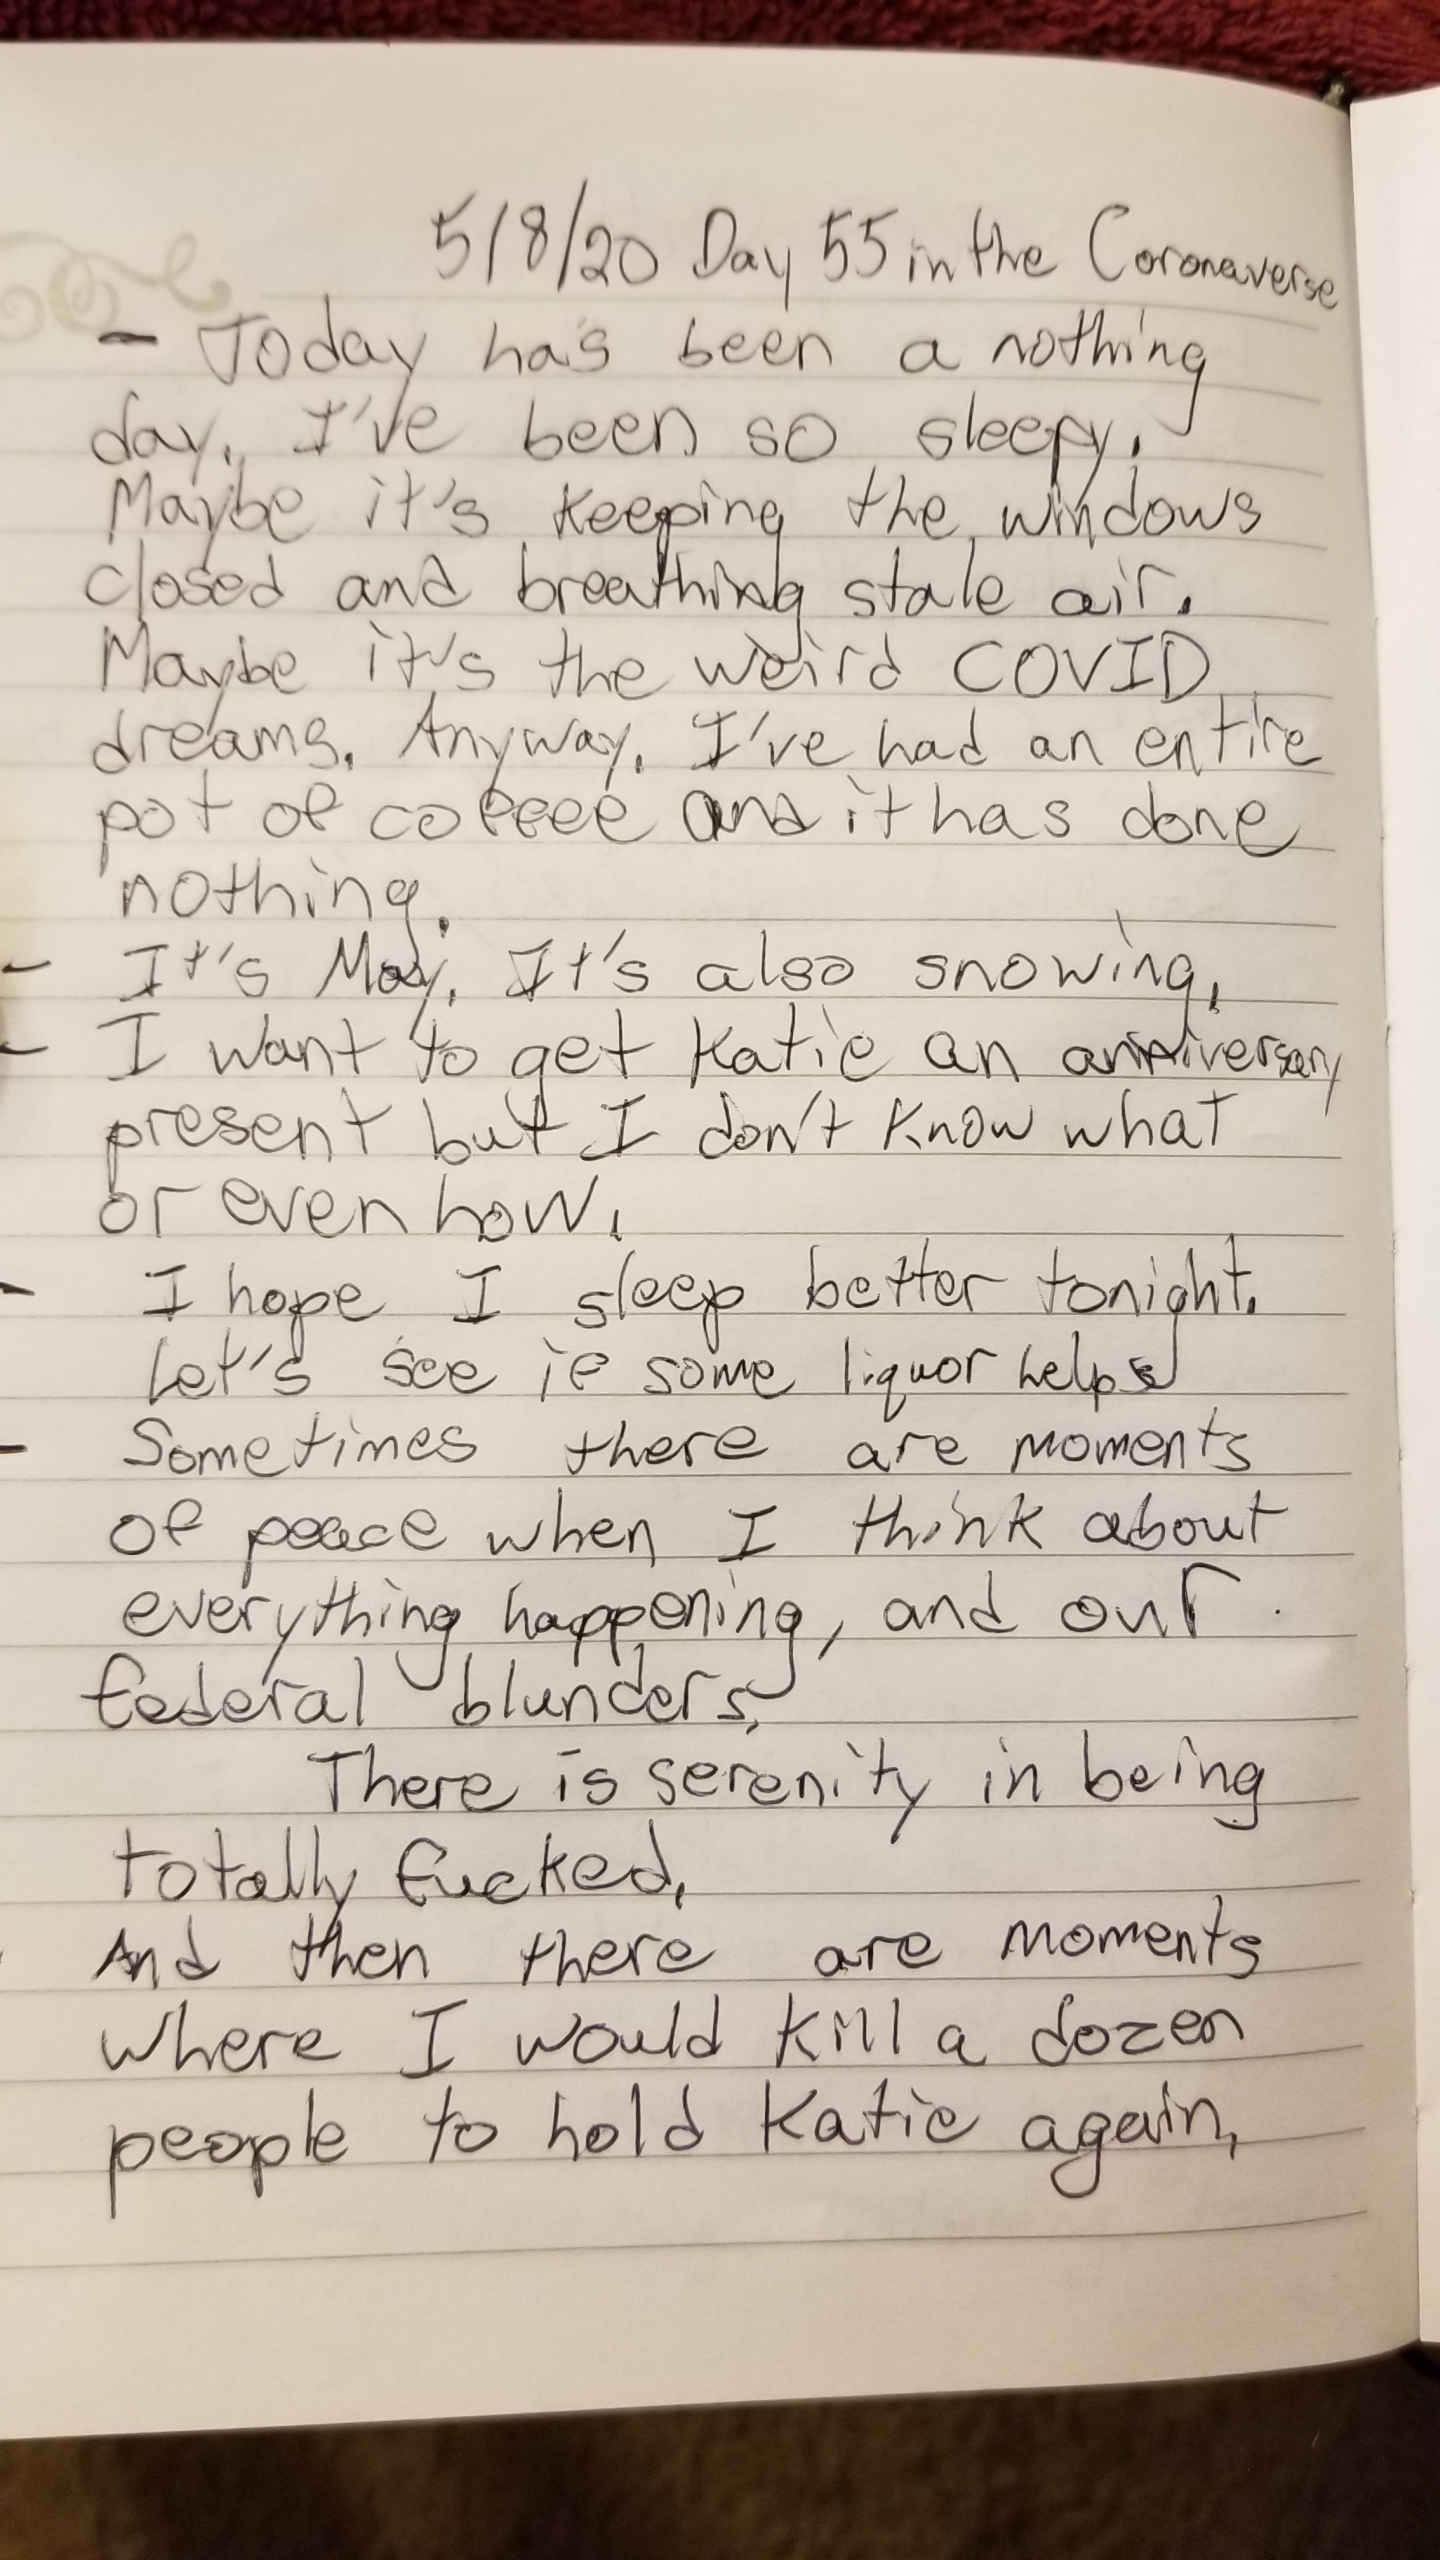 5/8/20 Day 55 in the Coronaverse
- Today has been a nothing
day. I've been so sleepy.
Maybe it's keeping the windows
closed and breathing stale air.
Maybe it's the weird COVID
dreams. Anyway. I've had an entire
pot of coffee and it has done
nothing.
- It's May. It's also snowing.
- I want to get Katie an anniversary
present but I don't know what
or even how.
- I hope I sleep better tonight.
Let's see if some liquor helps
- Sometimes there are moments
of peace when I think about
everything happening, and our
federal blunders.
There is serenity in being
totally fucked.
- And then there are moments
where I would kill a dozen
people to hold Katie again.